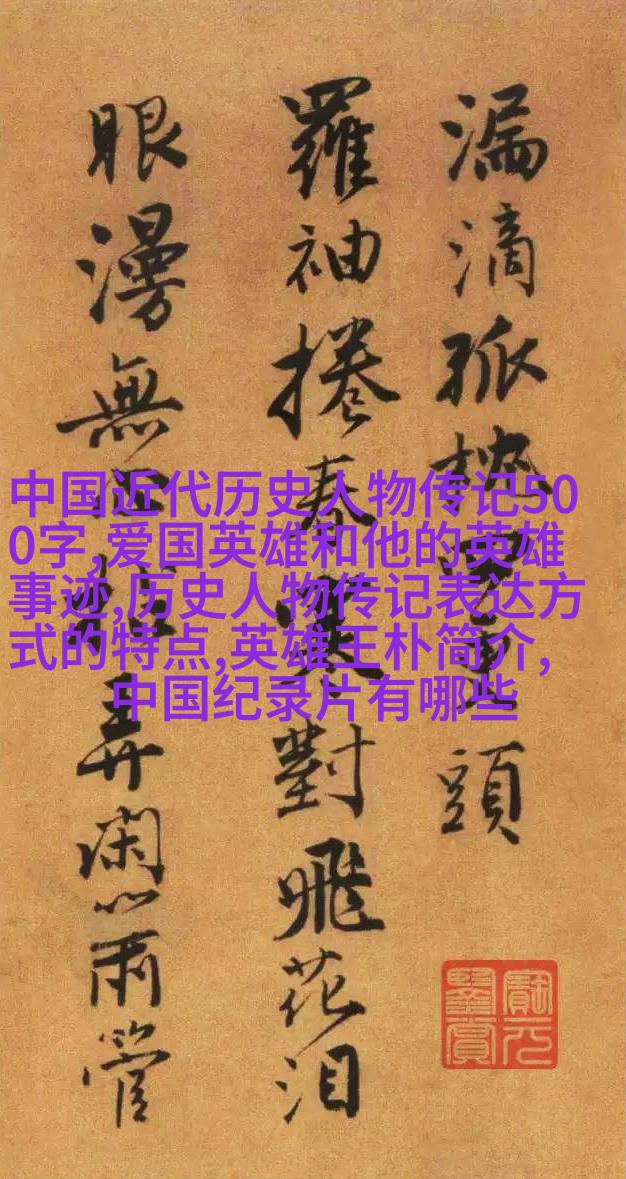 中国近代历史人物传记50
0字,爱国英雄和他的英雄
事迹,历史人物传记表达方
式的特点,英雄王朴简介,
中国纪录片有哪些
漏滴孤重頭
羅袖捲春寒對飛花泪
眼漫無心弄閑管